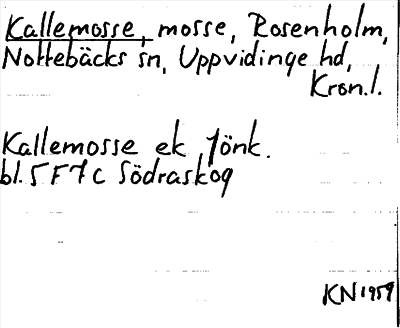 Kallemosse, mosse, Rosenholm,
Nottebäcks sn, Uppvidinge hd,
Kron.l.
Kallemosse ek Jönk.
bl. 5 F 7 c Södraskog
KN 1959